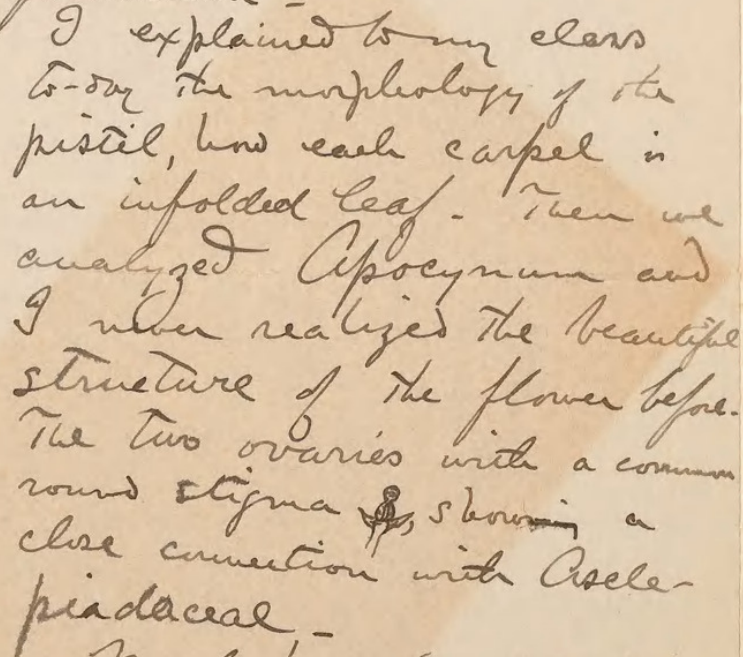 I explained to my class
to-day the morphology of the
pistil, how each carpel is
an infolded leaf. Then we
analyzed Apocynum and
I never realized the beautiful
structure of the flower before.
The two ovaries with a common
round stigma, showing a
close connection with Ascle-
piadaceae, -